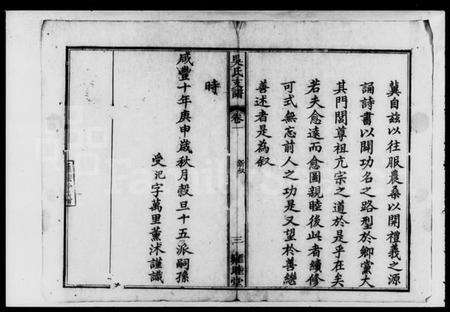 冀自茲以往服農桑以開禮義之源
誦詩書以開功名之路型於鄉黨大
其門閭尊祖亢宗之道於是乎在矣
若夫愈遠而愈圖親睦後此者續修
可式無忘前人之功是又望於善繼
善述者是為叙
吳氏支譜
卷一
新叙
三
時
咸豐十年庚申歲秋月穀旦十五派嗣孫
受祀字萬里薰沐謹識